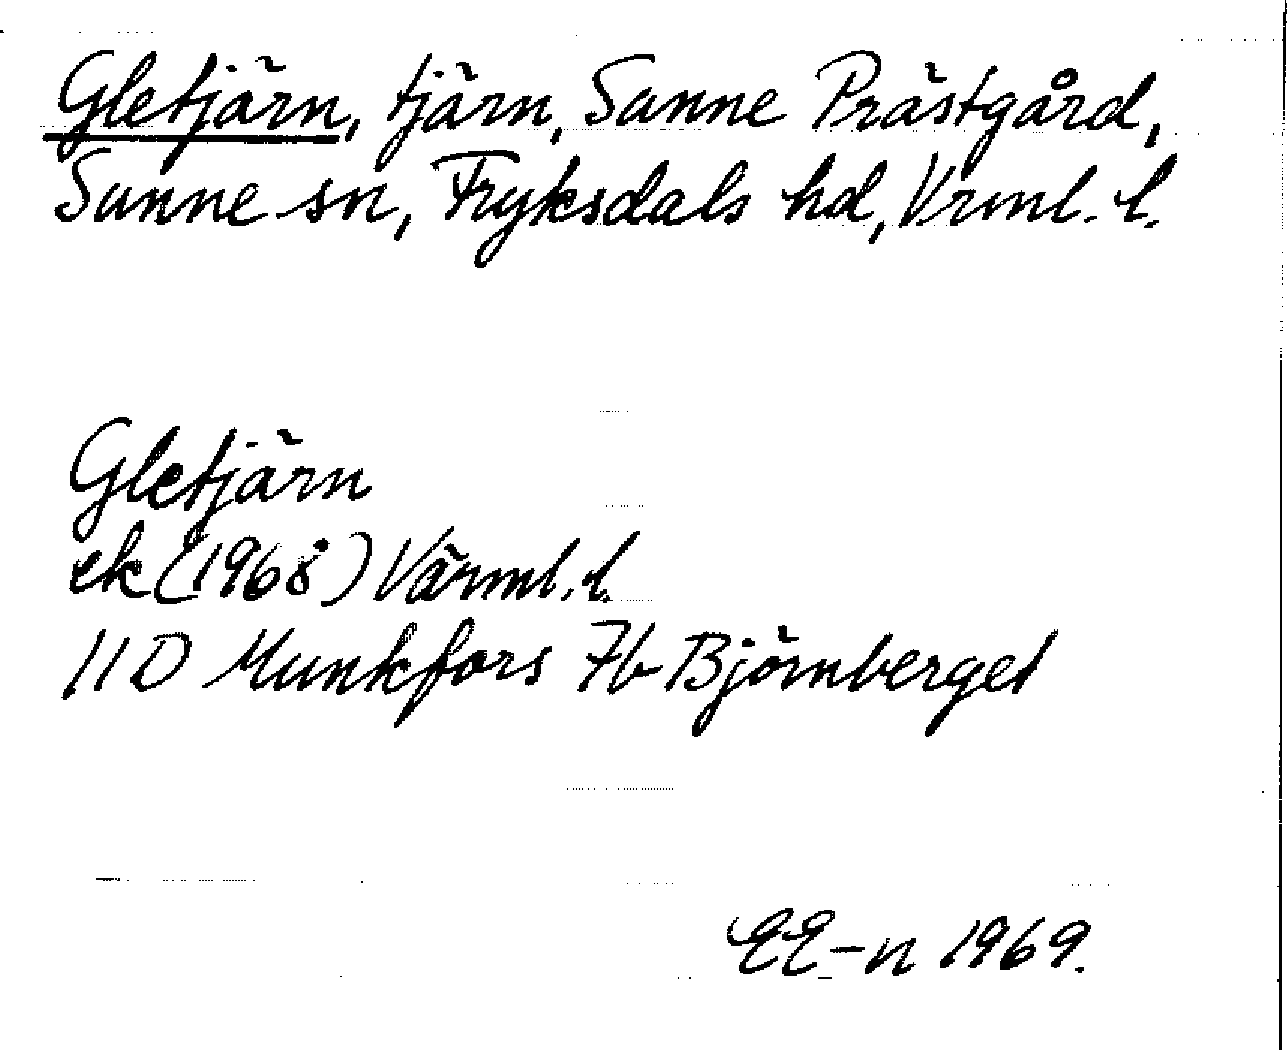 Gletjärn, tjärn, Sunne Prästgård,
Sunne sn, Fryksdals hd, Vrml. l.
Gletjärn
ek (1968) Värml. l.
11D Munkfors 7b Björnberget
EE-n 1969.